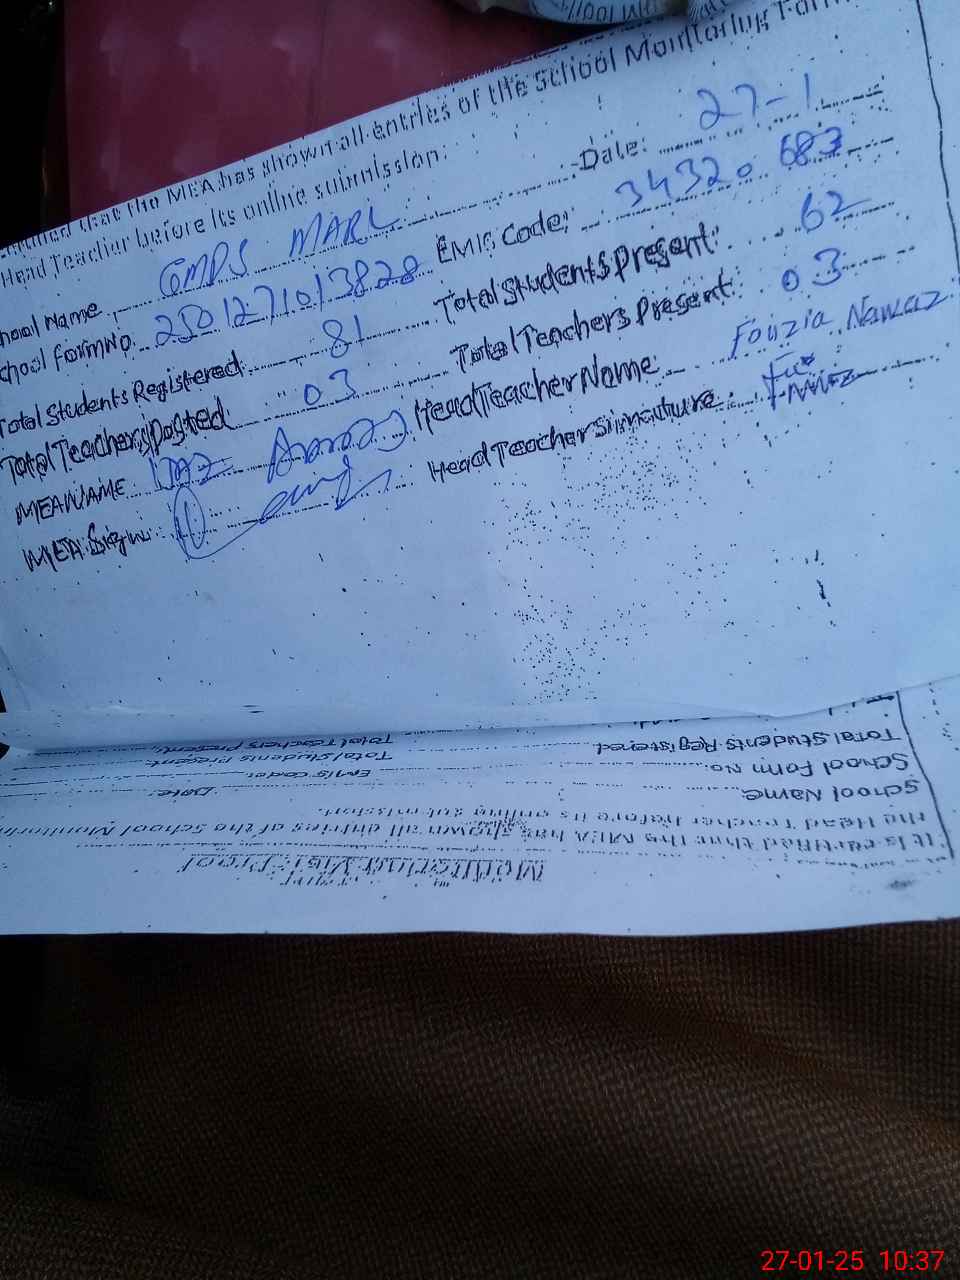 that the MEA has shown all entries of the School Monitoring Form
Head Teacher before its online submission.
Date: 27-1
hool Name GMPS MARL EMIS Code: 34320683
chool Form No. 2501271013828 Total Students Present: 62
Total Students Registered: 81 Total Teachers Present: 03
Total Teachers Posted 03 Head Teacher Name Fouzia Nawaz
MEA NAME Head Teacher Simature
MEA Sign:
Monitoring Visit Proof
It is certified that the MEA has shown all entries of the School Monitorin
the Head Teacher before its online submission.
School Name Date:
School Form No. EMIS Code:
Total Students Registered Total Students Present
Total Teachers Present:
27-01-25 10:37